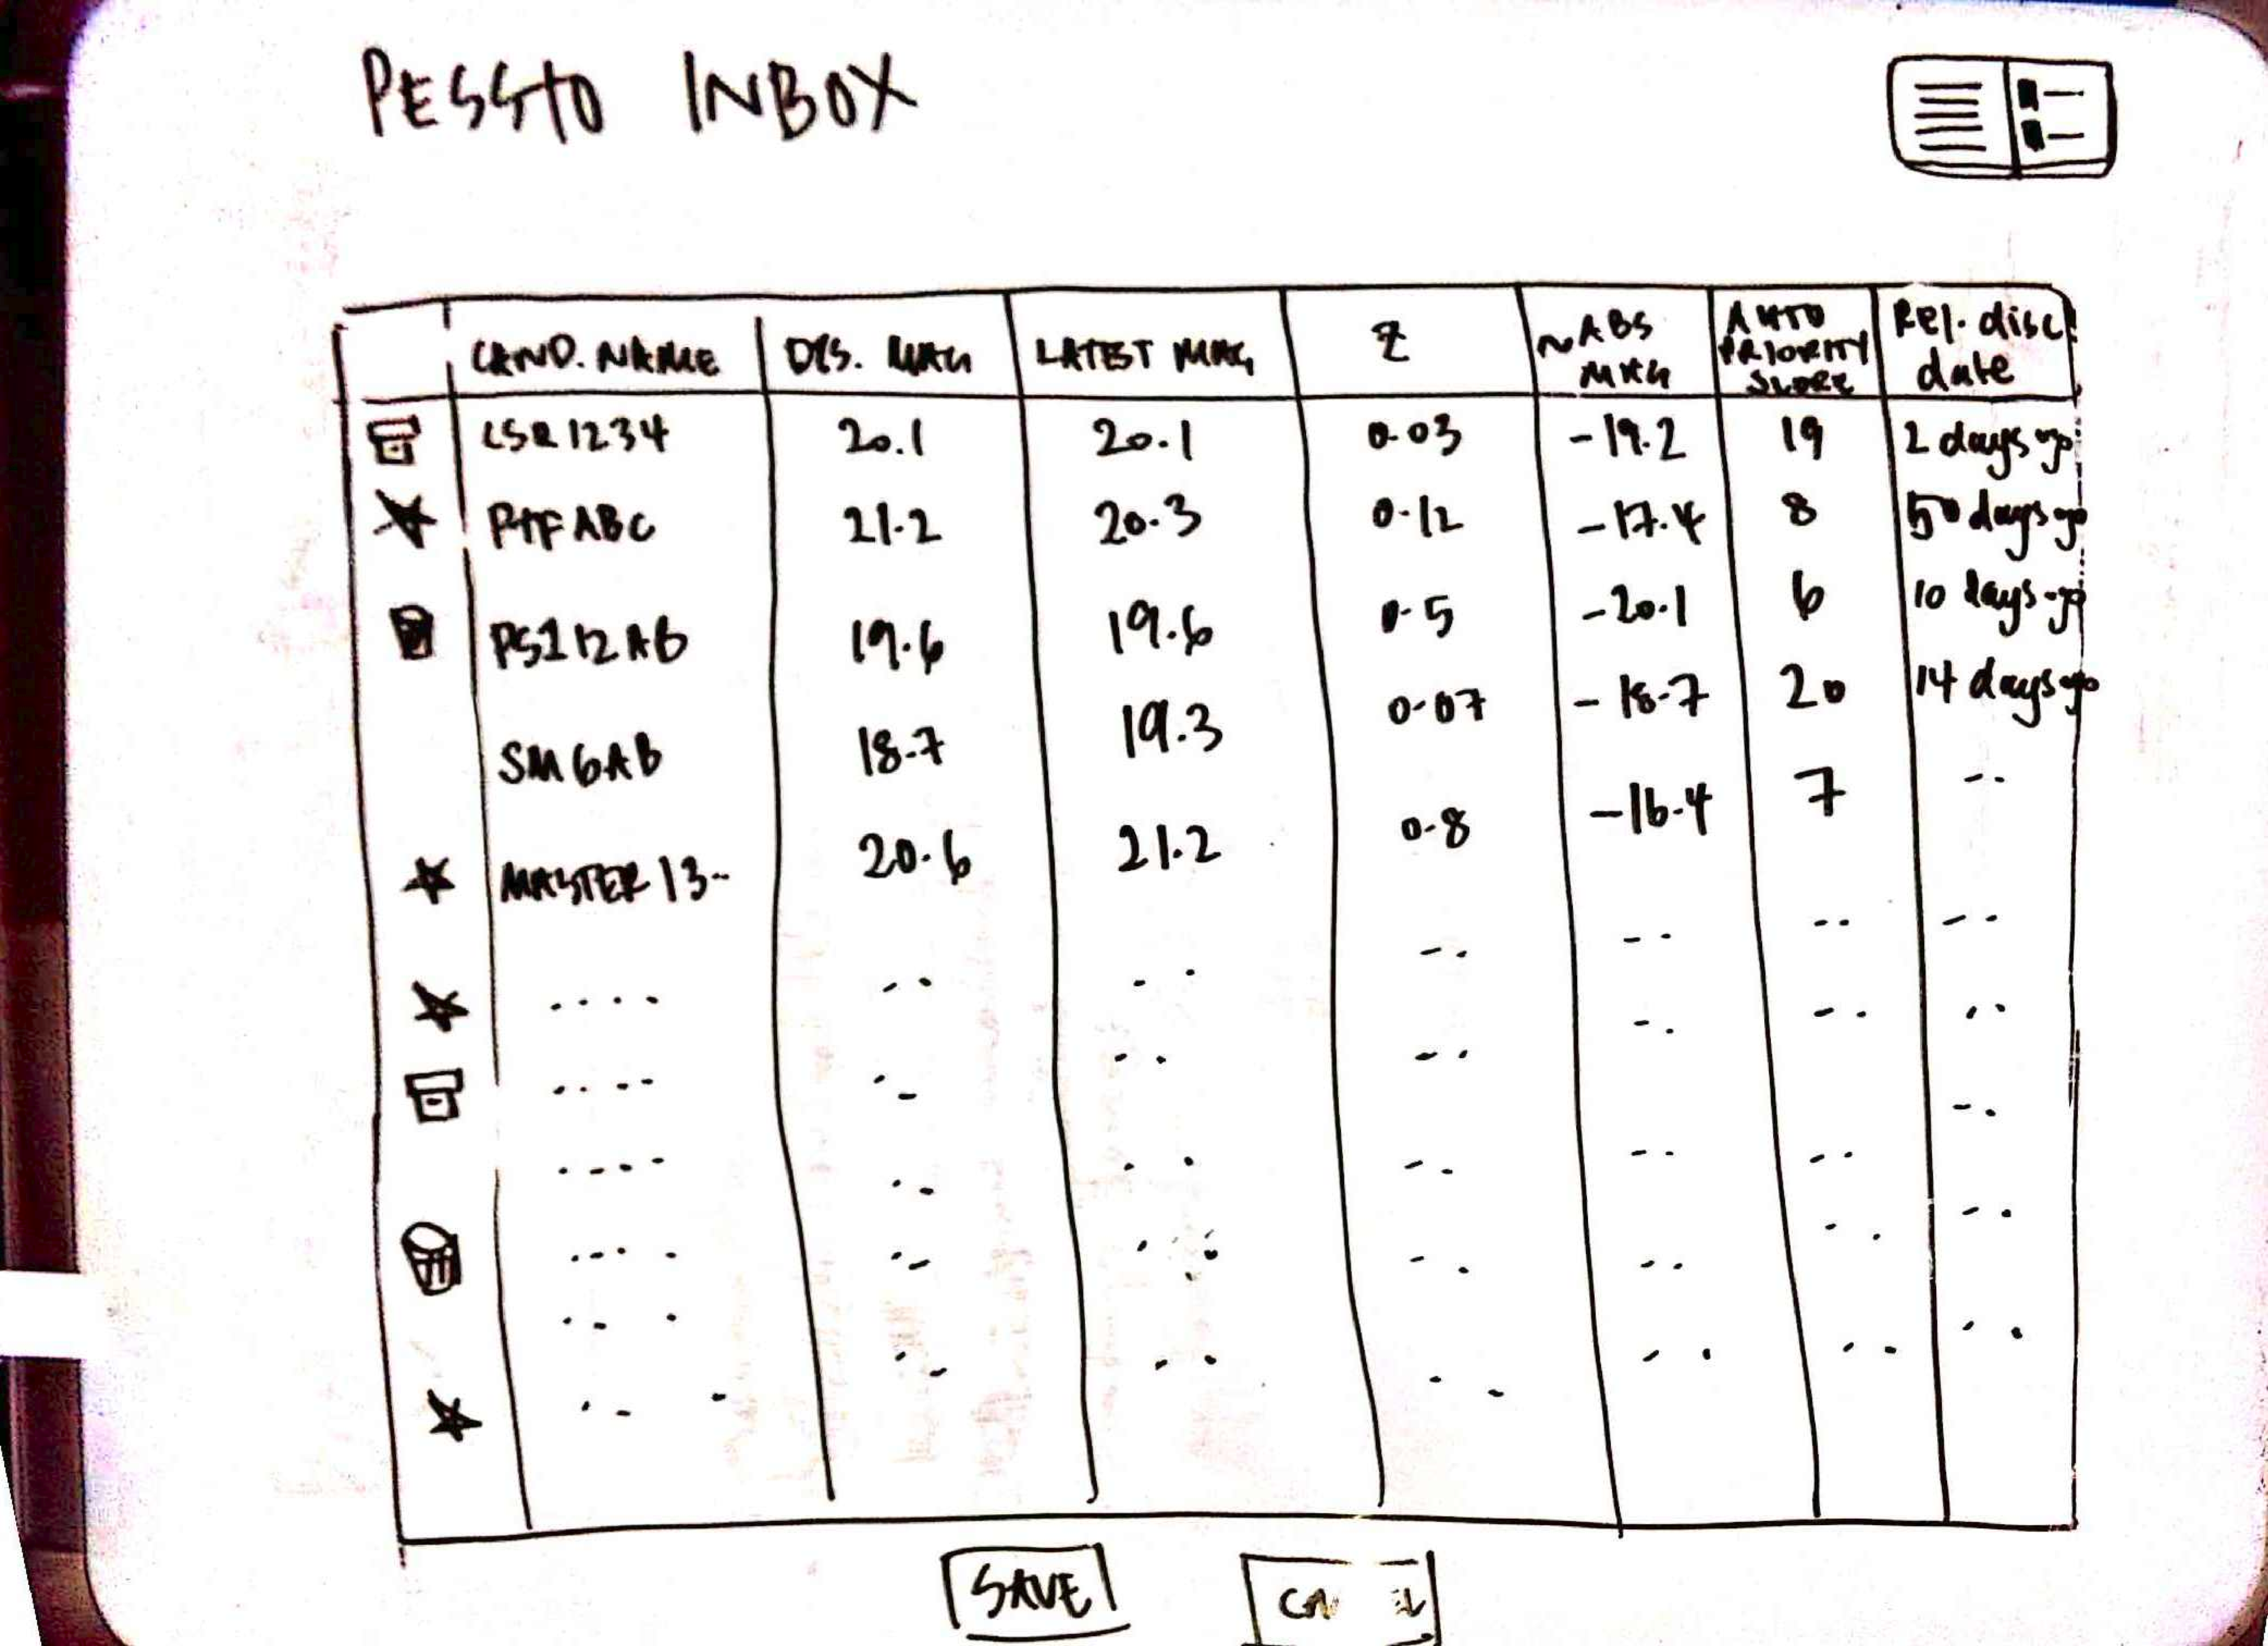 PESSTO INBOX
CAND. NAME DIS. MAG LATEST MAG Z ~ABS MAG AUTO PRIORITY SCORE Rel. disc. date
LSQ1234 20.1 20.1 0.03 -19.2 19 2 days ago
PTFABC 21.2 20.3 0.12 -17.4 8 50 days ago
PS112AB 19.6 19.6 0.5 -20.1 6 10 days ago
SM6AB 18.7 19.3 0.07 -18.7 20 14 days ago
MASTER13.. 20.6 21.2 0.8 -16.4 7
SAVE